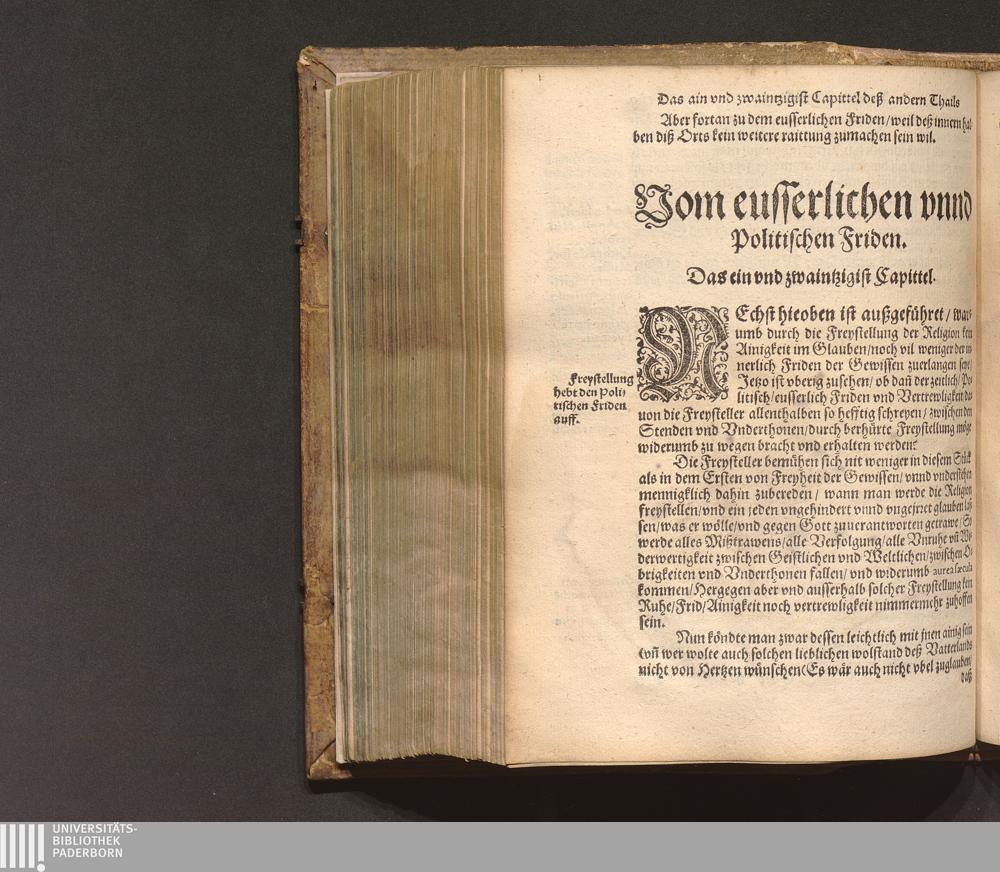 Das ain vnd zwaintzigist Capittel deß andern Thails
Aber fortan zu dem eusserlichen Friden/weil deß innern hal-
ben diß Orts kein weitere raittung zumachen sein wil.
Vom eusserlichen vnnd
Politischen Friden.
Das ein vnd zwaintzigist Capittel.
Freystellung
hebt den Poli-
tischen Friden
auff.
NEchst hieoben ist außgeführet/ war-
umb durch die Freystellung der Religion kein
Ainigkeit im Glauben/noch vil weniger der in-
nerlich Friden der Gewissen zuerlangen seye/
Jetzo ist vberig zusehen/ ob dañ der zeitlich/ Po-
litisch/eusserlich Friden vnd Vertrewligkeit da-
uon die Freysteller allenthalben so hefftig schreyen/ zwischen den
Stenden vnd Vnderthonen/durch berhürte Freystellung möge
widerumb zu wegen bracht vnd erhalten werden?
Die Freysteller bemühen sich nit weniger in diesem Stück
als in dem Ersten von Freyheit der Gewissen/ vnnd vnderstehen
mennigklich dahin zubereden/ wann man werde die Religion
freystellen/vnd ein jeden vngehindert vnnd vngejrret glauben las-
sen/was er wölle/vnd gegen Gott zuuerantworten getrawe/ So
werde alles Mißtrawens/alle Verfolgung/alle Vnruhe vñ Wi-
derwertigkeit zwischen Geistlichen vnd Weltlichen/zwischen O-
brigkeiten vnd Vnderthonen fallen/ vnd widerumb aurea sæcula
kommen/Hergegen aber vnd ausserhalb solcher Freystellung kein
Ruhe/Frid/Ainigkeit noch vertrewligkeit nimmermehr zuhoffen
sein.
Nun köndte man zwar dessen leichtlich mit jnen ainig sein
(vñ wer wolte auch solchen lieblichen wolstand deß Vatterlands
nicht von Hertzen wünschen(Es wär auch nicht vbel zuglauben/
daß
UNIVERSITÄTS-
BIBLIOTHEK
PADERBORN